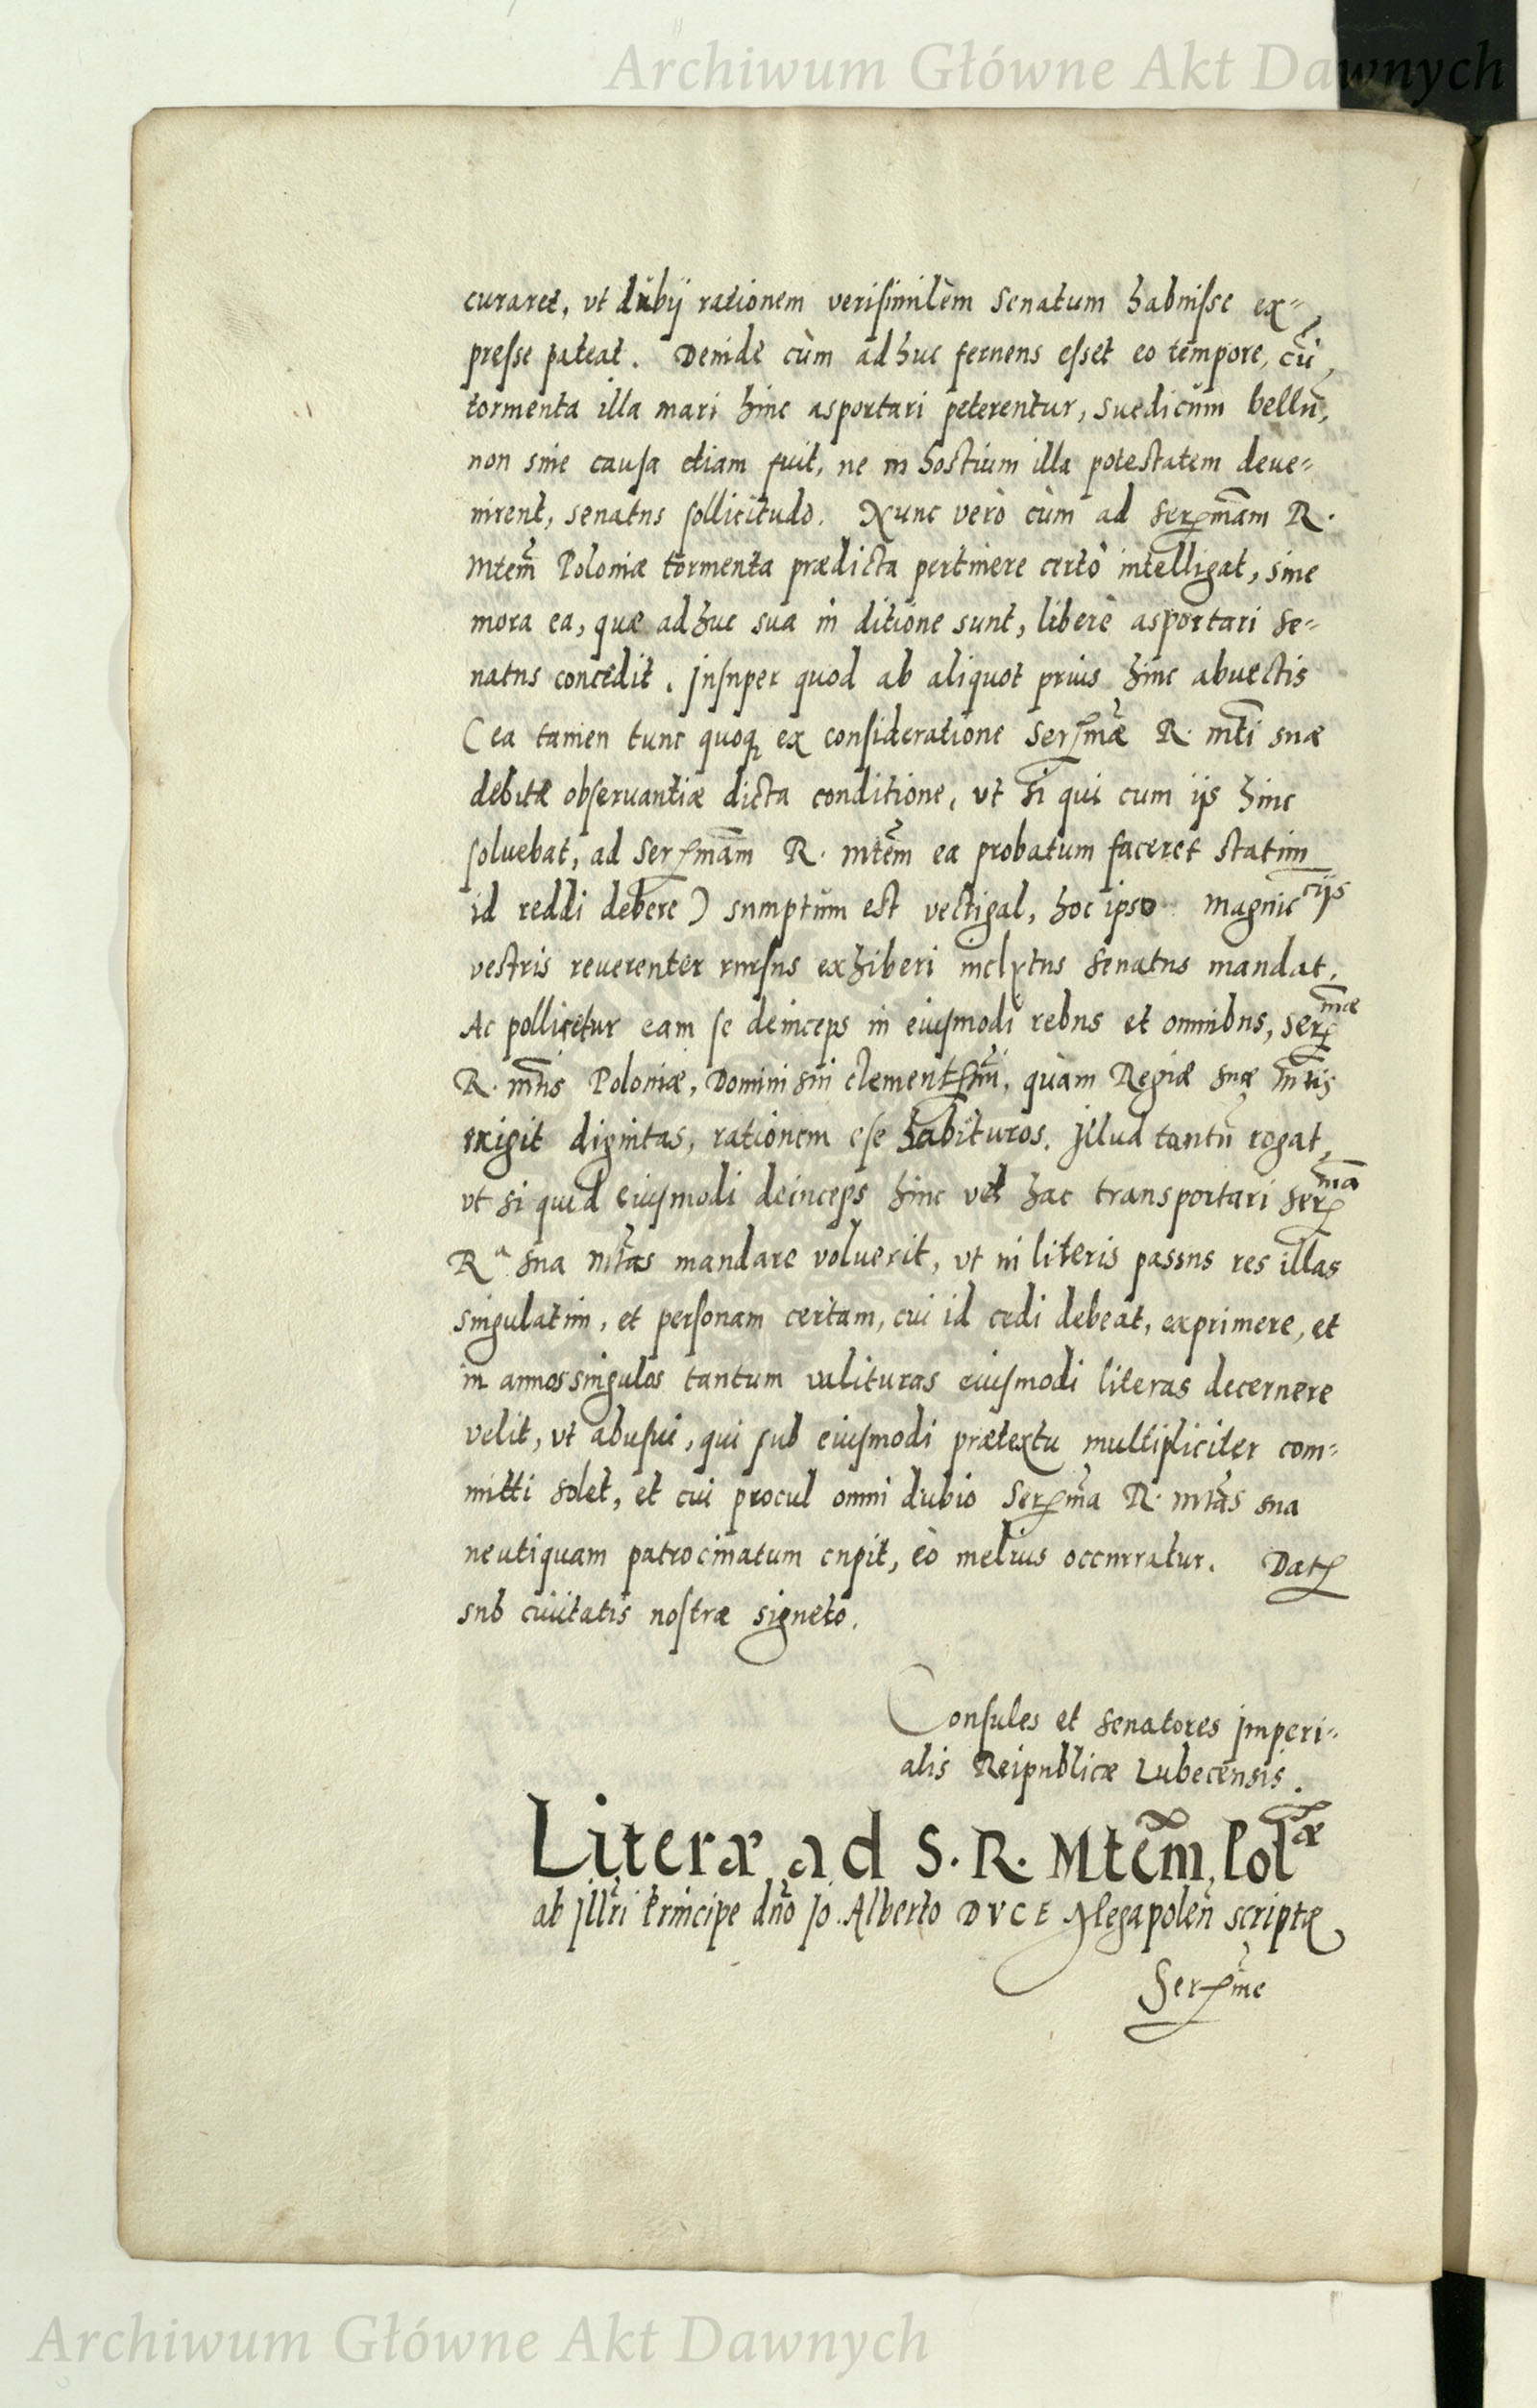 Archiwum Główne Akt Dawnych
curaret, vt dubij rationem verisimilem Senatum habuisse ex-
presse pateat. Deinde cùm adhuc feruens esset eo tempore, cũ
tormenta illa mari hinc asportari peterentur, Suedicum bellũ,
non sine causa etiam fuit, ne in hostium illa potestatem deue-
nirent, senatus sollicitudo. Nunc verò cùm ad Serᵐmam R.
Mtem Poloniæ tormenta prædicta pertinere certò intelligat, sine
mora ea, quæ adhuc sua in ditione sunt, liberè asportari Se-
natus concedit. Insuper quod ab aliquot prius hinc abuectis
(ea tamen tunc quoq; ex consideratione Sermæ R. mti suæ
debitæ obseruantiæ dicta conditione, vt si qui cum ijs hinc
soluebat, ad Sermam R. mtem ea probatum faceret statim
id reddi debere) sumptum est vectigal, hoc ipso Magnicijs
vestris reuerenter rursus exhiberi inclytus Senatus mandat.
Ac pollicetur eam se deinceps in eiusmodi rebus et omnibus, Sermæ
R. mtis Poloniæ, Domini sui clementssmi, quàm Regiæ suæ mtis
exigit dignitas, rationem ese habituros. Illud tantũ rogat,
vt si quid eiusmodi deinceps hinc vel hac transportari Serma
Rª sua mtas mandare voluerit, vt in literis passus res illas
singulatim, et personam certam, cui id cedi debeat, exprimere, et
in annos singulos tantum valituras eiusmodi literas decernere
velit, vt abusui, qui sub eiusmodi prætextu multipliciter com-
mitti solet, et cui procul omni dubio Serma R. mtas sua
neutiquam patrocinatum cupit, eò melius occurratur. Dat
sub ciuitatis nostræ signeto.
Consules et Senatores Imperi-
alis Reipublicæ Lubecensis.
Literæ ad S. R. Mtem Polæ
ab Illri Principe dño Jo. Alberto DVCE Megapoleñ scriptæ
Serme
Archiwum Główne Akt Dawnych